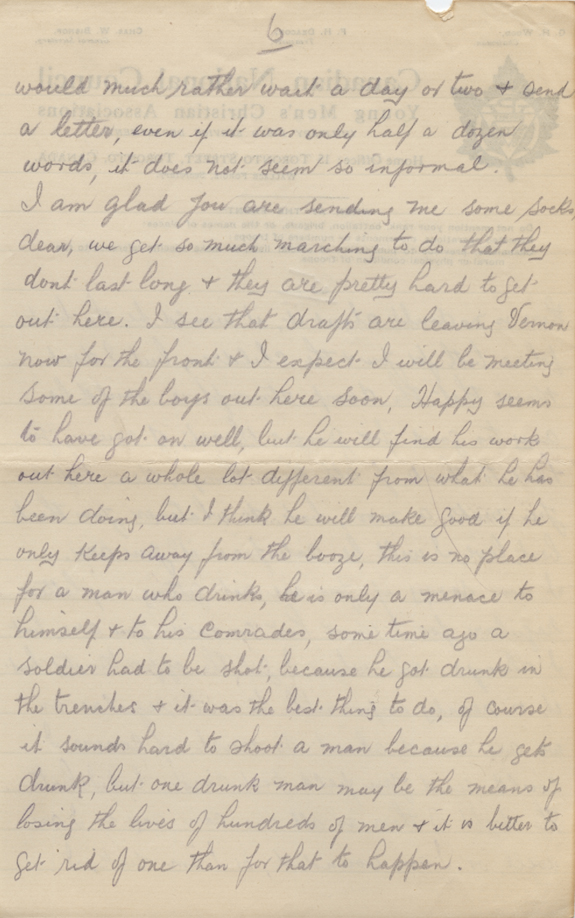 6
would much rather wait a day or two & send
a letter, even if it was only half a dozen
words, it does not seem so informal.
I am glad you are sending me some socks,
dear, we get so much marching to do that they
dont last long & they are pretty hard to get
out here. I see that drafts are leaving Vernon
now for the front & I expect I will be meeting
some of the boys out here soon, Happy seems
to have got on well, but he will find his work
out here a whole lot different from what he has
been doing, but I think he will make good if he
only keeps away from the booze, this is no place
for a man who drinks, he is only a menace to
himself & to his comrades, some time ago a
soldier had to be shot, because he got drunk in
the trenches & it was the best thing to do, of course
it sounds hard to shoot a man because he gets
drunk, but one drunk man may be the means of
losing the lives of hundreds of men & it is better to
get rid of one than for that to happen.